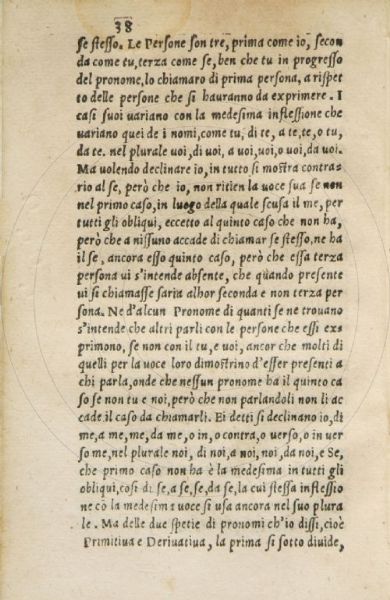 38
se stesso. Le Persone son tre, prima come io, secon
da come tu, terza come se, ben che tu in progresso
del pronome, lo chiamaro di prima persona, a rispet
to delle persone che si hauranno da exprimere. I
casi suoi uariano con la medesima inflessione che
uariano quei de i nomi, come tu, di te, a te, te, o tu,
da te. nel plurale uoi, di uoi, a uoi, uoi, o uoi, da uoi.
Ma uolendo declinare io, in tutto si mostra contra=
rio al se, però che io, non ritien la uoce sua se non
nel primo caso, in luogo della quale scusa il me, per
tutti gli obliqui, eccetto al quinto caso che non ha,
però che a nissuno accade di chiamar se stesso, ne ha
il se, ancora esso quinto caso, però che essa terza
persona ui s'intende absente, che quando presente
ui si chiamasse saria alhor seconda e non terza per
sona. Ne d'alcun Pronome di quanti se ne trouano
s'intende che altri parli con le persone che essi ex=
primono, se non con il tu, e uoi, ancor che molti di
quelli per la uoce loro dimostrino d'esser presenti a
chi parla, onde che nessun pronome ha il quinto ca
so se non tu e noi, però che non parlandoli non li ac
cade il caso da chiamarli. Ei detti si declinano io, di
me, a me, me, da me, o in, o contra, o uerso, o in uer
so me, nel plurale noi, di noi, a noi, noi, da noi, e Se,
che primo caso non ha è la medesima in tutti gli
obliqui, così di se, a se, se, da se, la cui stessa inflessio
ne cō la medesima uoce si usa ancora nel suo plura
le. Ma delle due spetie di pronomi ch'io dissi, cioè
Primitiua e Deriuatiua, la prima si sotto diuide,